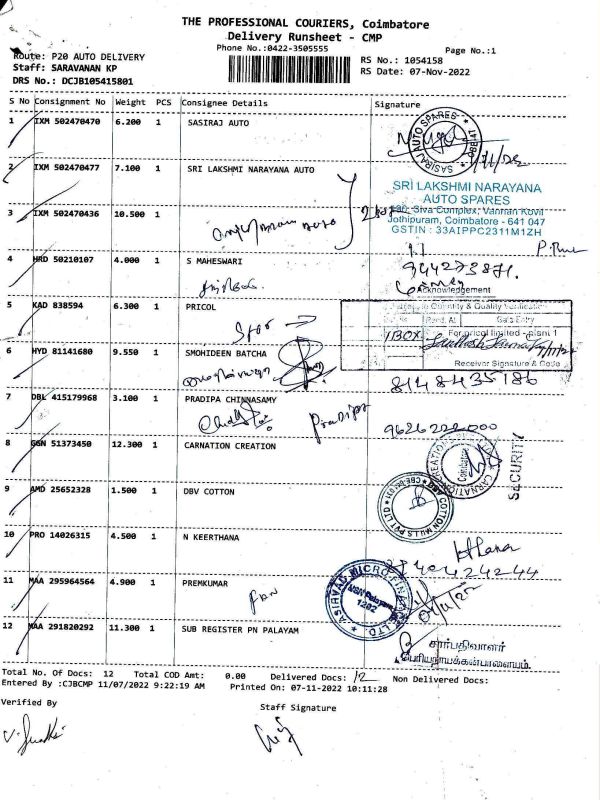 THE PROFESSIONAL COURIERS, Coimbatore
Delivery Runsheet - CMP
Phone No.:0422-3505555
Page No.:1
Route: P20 AUTO DELIVERY
Staff: SARAVANAN KP
DRS No.: DCJB105415801
RS No.: 1054158
RS Date: 07-Nov-2022
S No Consignment No Weight PCS Consignee Details Signature
1 IXM 502470470 6.200 1 SASIRAJ AUTO
SASIRAJ AUTO SPARES
2 IXM 502470477 7.100 1 SRI LAKSHMI NARAYANA AUTO
SRI LAKSHMI NARAYANA
AUTO SPARES
Siva Complex, Vannan Kovil
Jothipuram, Coimbatore - 641 047
GSTIN : 33AIPPC2311M1ZH
3 IXM 502470436 10.500 1
4 HRD 50210107 4.000 1 S MAHESWARI
Acknowledgement
5 KAD 838594 6.300 1 PRICOL
Quantity & Quality Verification
Gate Entry
1 BOX
For pricol limited - plant 1
Receiver Signature & Code
6 HYD 81141680 9.550 1 SMOHIDEEN BATCHA
8148435186
7 DBL 415179968 3.100 1 PRADIPA CHINNASAMY
Pradipa
9626222000
8 GGN 51373450 12.300 1 CARNATION CREATION
CARNATION CREATIONS
Coimbatore
SECURITY
9 AMD 25652328 1.500 1 DBV COTTON
COTTON MILLS PVT LTD
10 PRO 14026315 4.500 1 N KEERTHANA
11 MAA 295964564 4.900 1 PREMKUMAR
ASIRVAD MICRO FINANCE LTD.
NSN Palayam
1202
12 MAA 291820292 11.300 1 SUB REGISTER PN PALAYAM
சார்பதிவாளர்
பெரியநாயக்கன்பாளையம்.
Total No. Of Docs: 12 Total COD Amt: 0.00 Delivered Docs: 12 Non Delivered Docs:
Entered By :CJBCMP 11/07/2022 9:22:19 AM Printed On: 07-11-2022 10:11:28
Verified By
Staff Signature